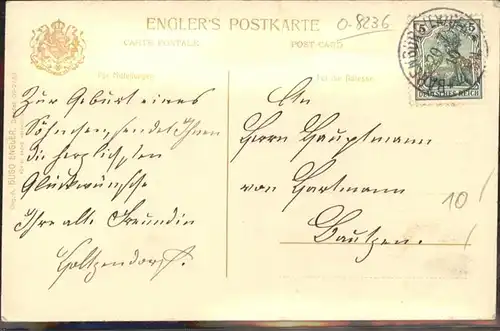 ENGLER'S POSTKARTE
O-8236
CARTE POSTALE
POST-CARD
Für Mitteilungen:
Für die Adresse:
5
5
DEUTSCHES REICH
Zur Geburt eines
Söhnchens, sendet Ihnen
die herzlichsten
Glückwünsche
Ihre alte Freundin
Holtzendorff.
An
Herrn Hauptmann
von Hartmann
Bautzen.
10
HUGO ENGLER